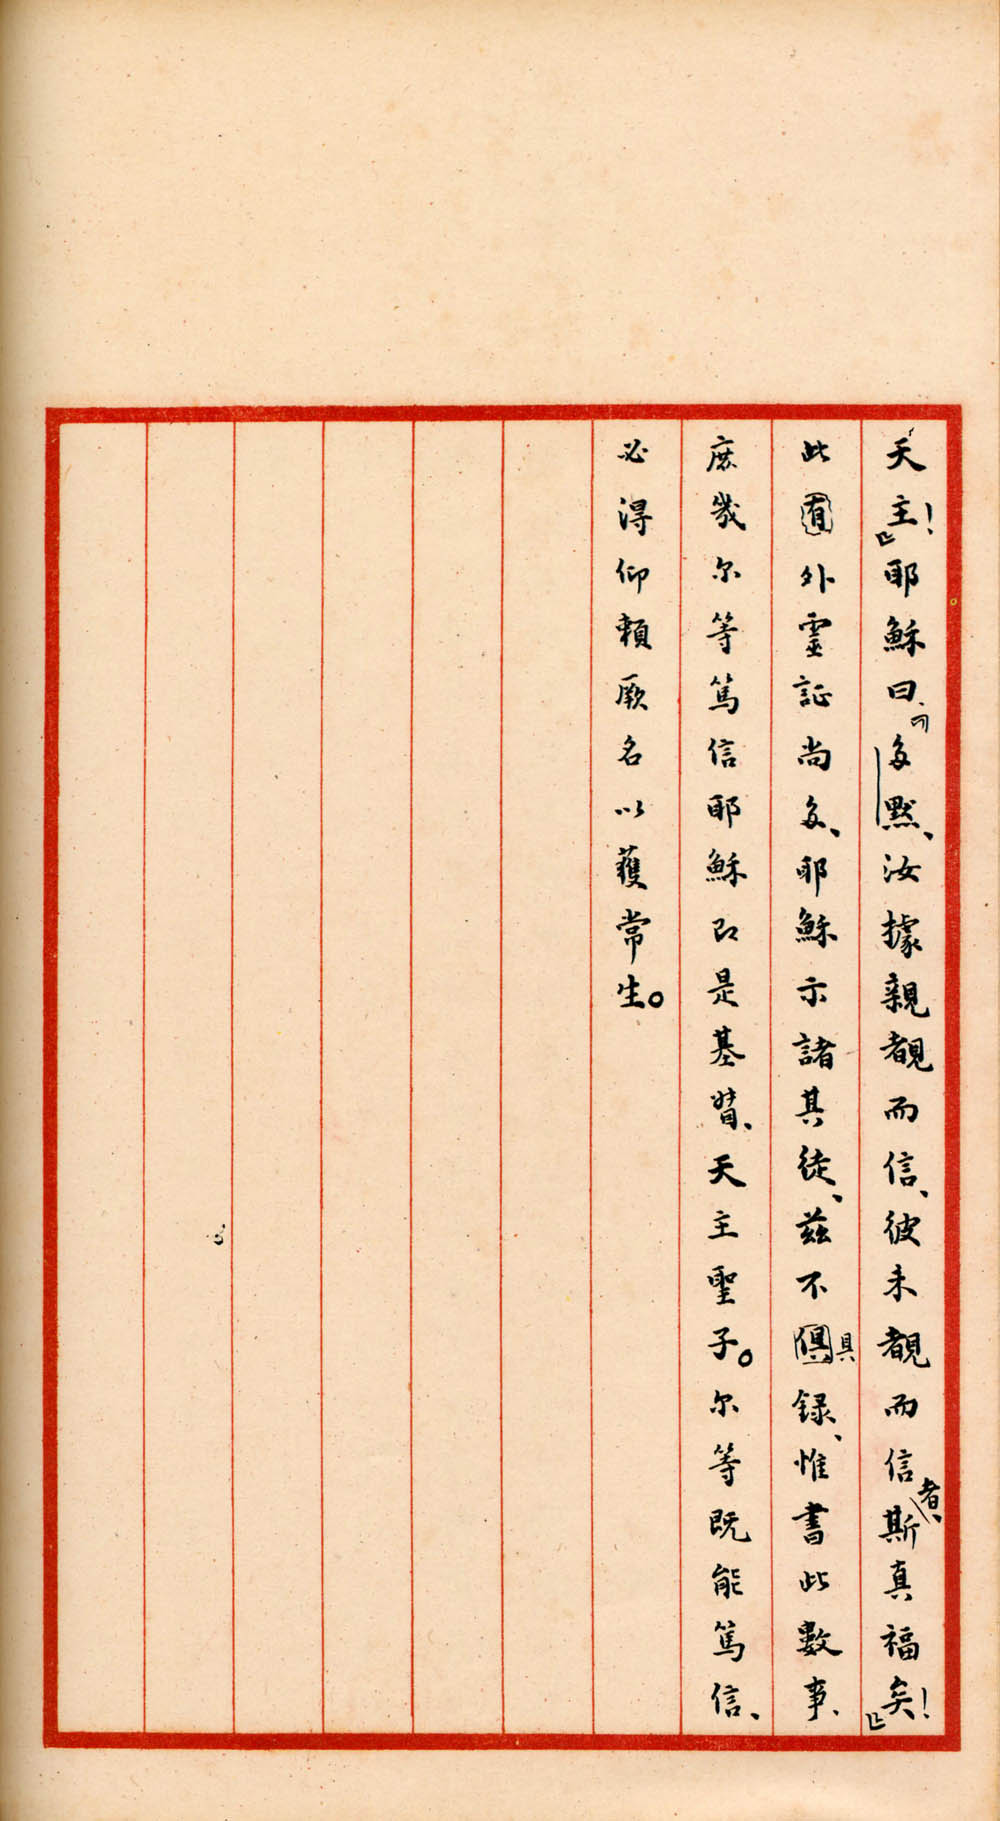 天主！』耶穌曰、『多默、汝據親覩而信、彼未覩而信者、斯真福矣！』
此有外靈証尚多、耶穌示諸其徒、茲不俱具録、惟書此數事、
庶幾尔等篤信耶穌即是基督、天主聖子。尔等既能篤信、
必得仰賴厥名以獲常生。